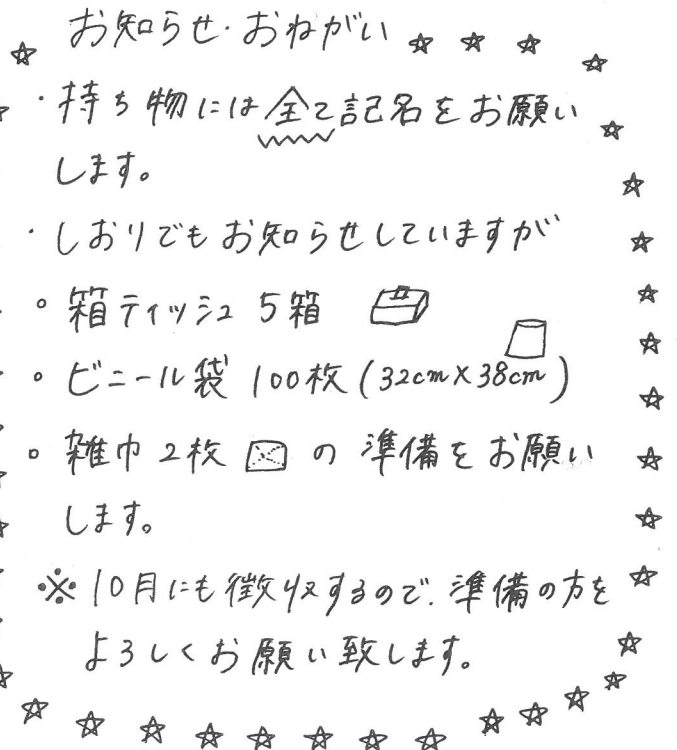 お知らせ・おねがい
・持ち物には全て記名をお願い
します。
・しおりでもお知らせしていますが
○ 箱ティッシュ 5箱
○ ビニール袋 100枚 (32cm×38cm)
○ 雑巾 2枚 の 準備をお願い
します。
※10月にも徴収するので、準備の方を
よろしくお願い致します。